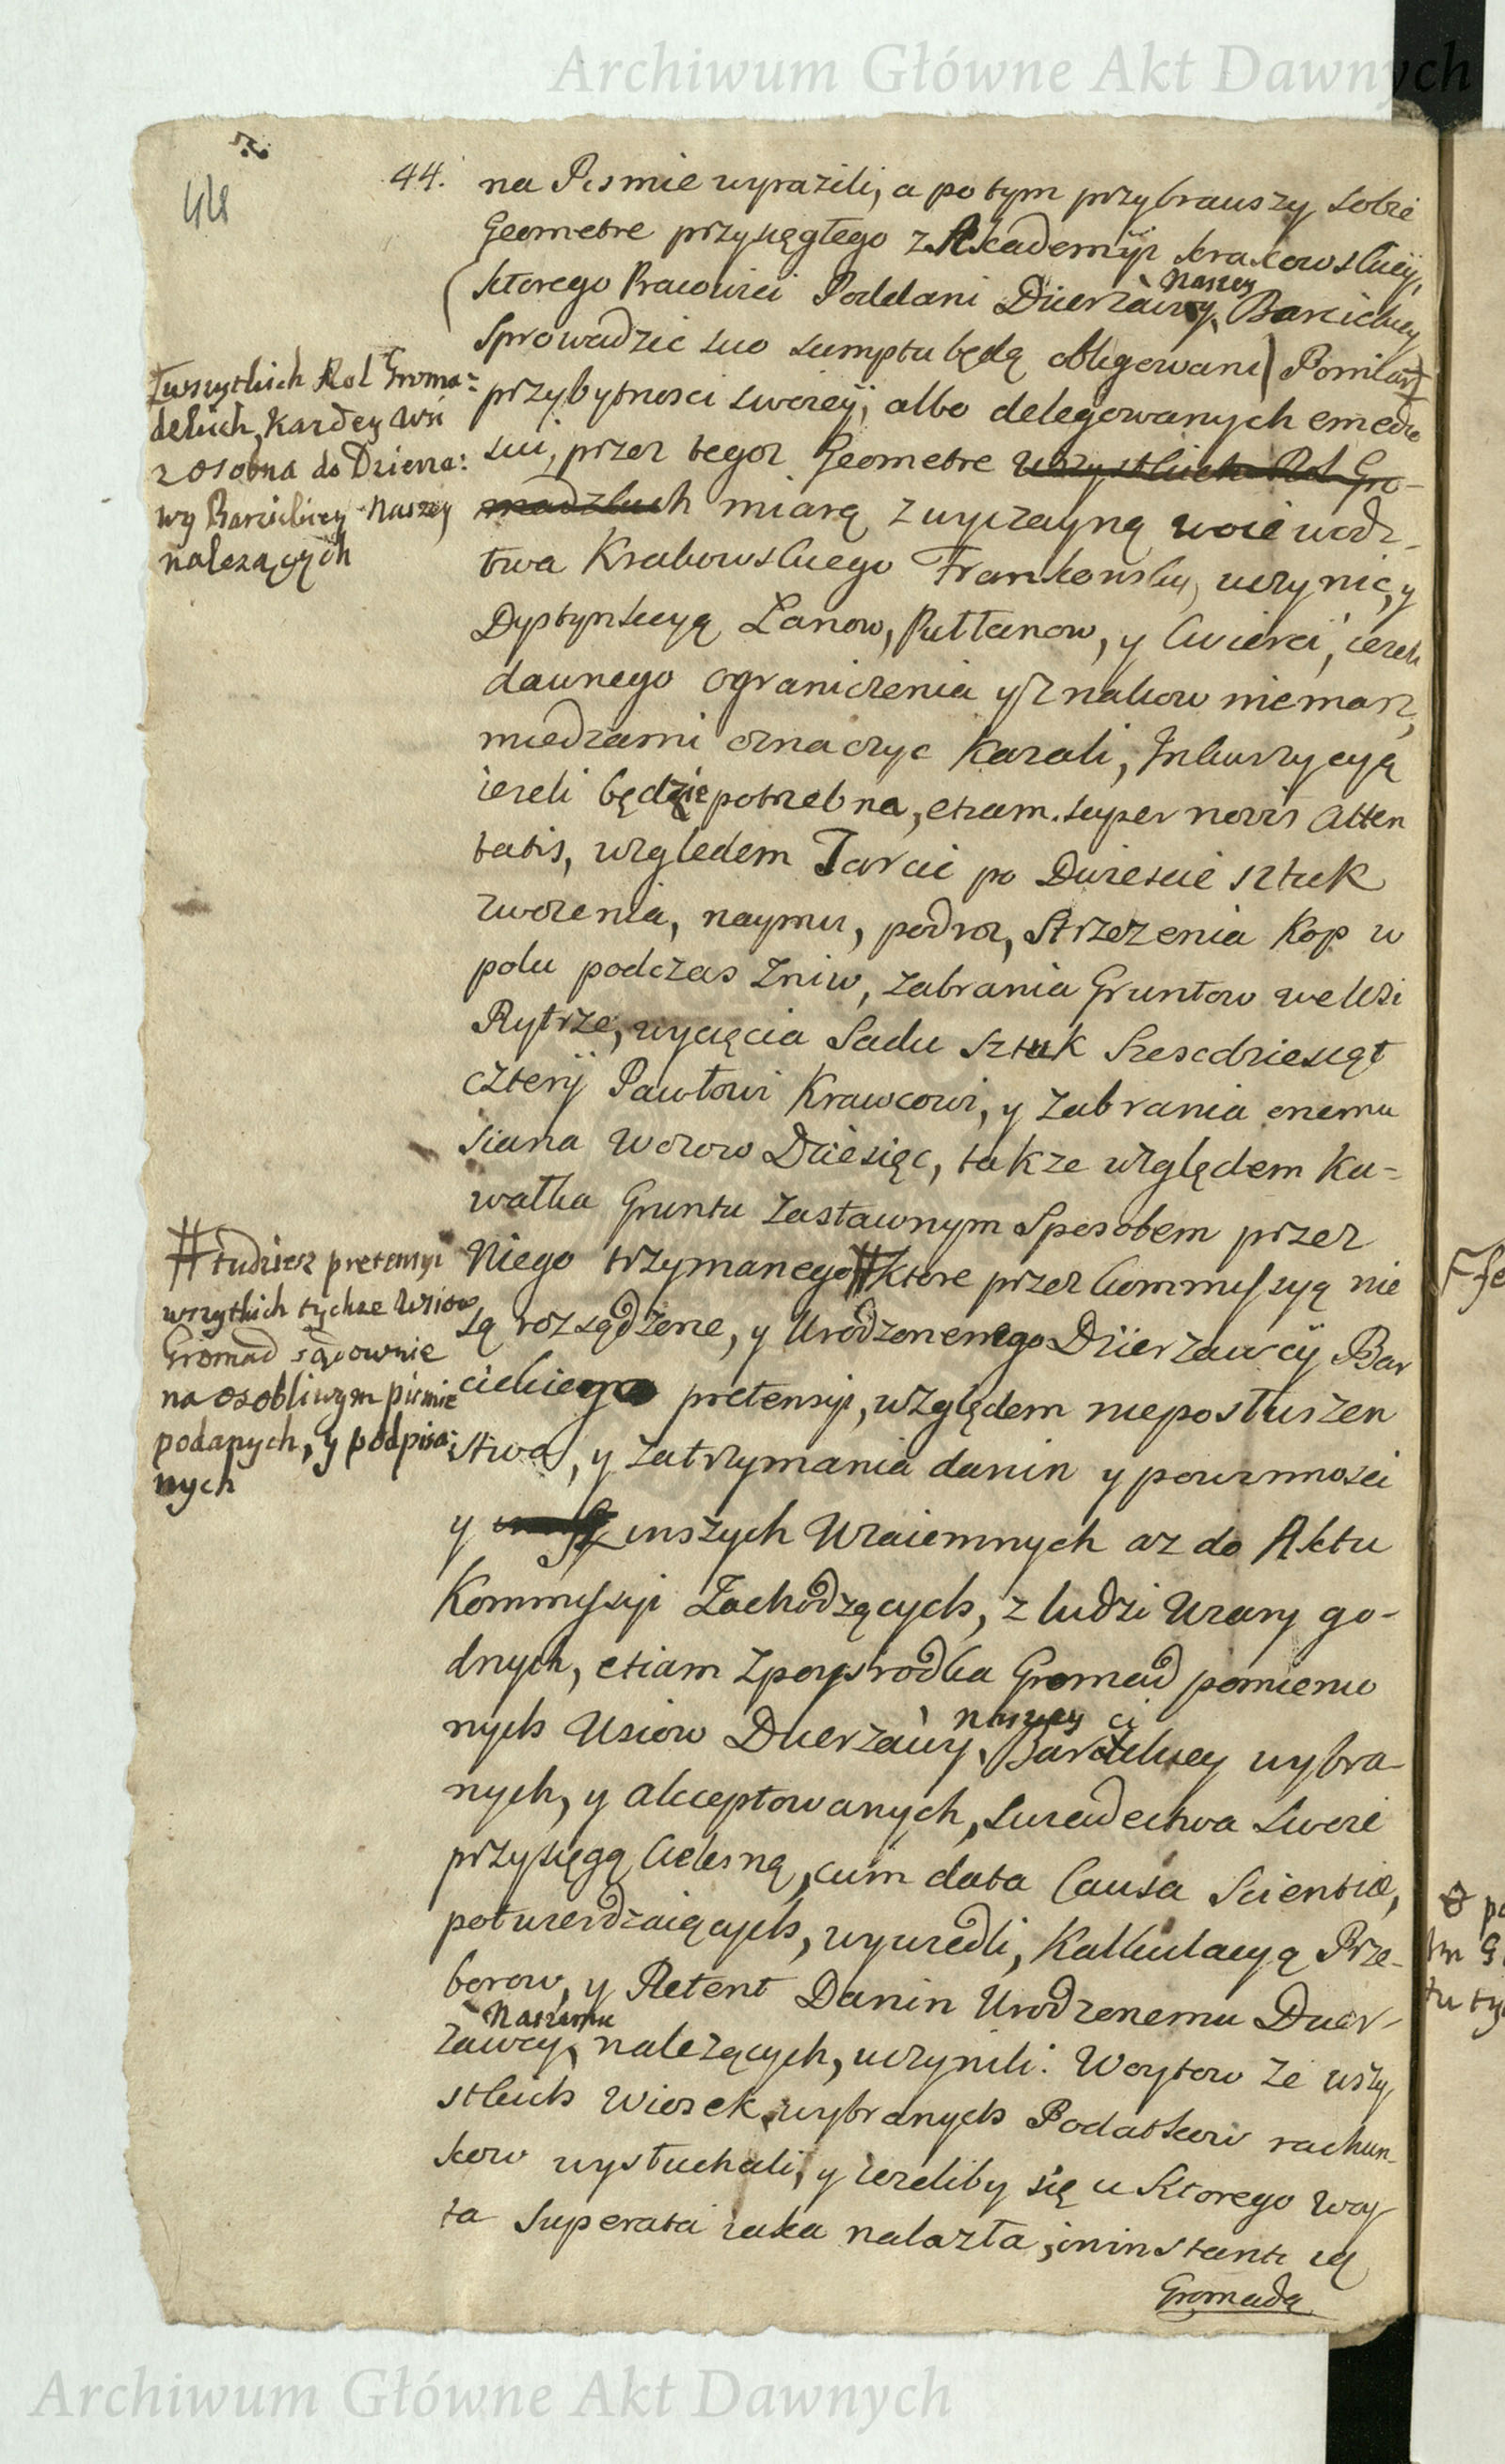 Archiwum Główne Akt Dawnych
44.
na Pismie wyrazili, a potym przybrawszy sobie
Geometrę przysięgłego z Akademÿi krakowskiey,
Naszey
(ktorego Pracowici Poddani Dzierzawy Barcickiey
sprowadzic suo sumptu będą obligowani) Pomiar
przybytnosci swoiey, albo delegowanych e medio
sui, przez tegoz Geometrę wszystkich Rol Gro-
madzkich miarą zwyczayną woiewodz-
twa Krakowskiego Frankowską uczynic, y
Dystynkcyą Łanow, Pułłanow, y Cwierci, iezeli
dawnego ograniczenia y znakow niemasz,
miedzami oznaczyc kazali, Inkwizycyą
iezeli będzie potrzebna, etiam super novis atten
tatis, względem Tarcic po Dwiescie sztuk
zwozenia, naymu, podroz, Strzezenia Kop w
polu podczas Zniw, zabrania Gruntow we Wsi
Rytrze, wycięcia Sadu sztuk szescdziesiąt
cztery Pawłowi Krawcowi, y zabrania onemu
siana wozow Dziesięc, takze względem ka-
wałka Gruntu zastawnym Sposobem przez
Niego trzymanego # ktore przez Commissyą nie
są rozsądzone, y Urodzonemego Dzierzawcy Bar
cickiego pretensyi, względem nieposłuszen
stwa, y zatrzymania danin y powinnosci
y inszych Wzaiemnych az do Aktu
Kommissyi Zachodzących, z ludzi Wiary go-
dnych, etiam zposrodka Gromad pomienio
nych Wsiow Dzierzawy naszey Barcickiey wybra-
nych, y akceptowanych, swiadectwa swoie
przysięgą Cielesną, cum data Causa Scientiæ,
potwierdzaiących, wywiedli, Kalkulacyą Prze-
borow, y Retent Danin Urodzonemu Dzier-
Naszemu
zawcy należących, uczynili: Woytow ze wszy
stkich Wiosek wybranych Podatkow rachun-
kow wysłuchali, y iezeliby się u ktorego Woy-
ta Superata iaka nalazła, in instanti ią
Gromadą
wszytkich Rol Groma=
dzkich, kazdey Wsi
z osobna do Dzierza:
wy Barcickiey Naszey
nalezących
# tudziesz pretensyi
wszytkich tychze Wsiow
Gromad sądownie
na osobliwym pismie
podanych, y podpisa:
nych
Archiwum Główne Akt Dawnych